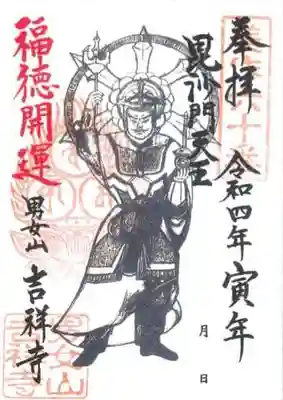 奉拝
令和四年寅年
月日
毘沙門天王
福徳開運
男女山
吉祥寺